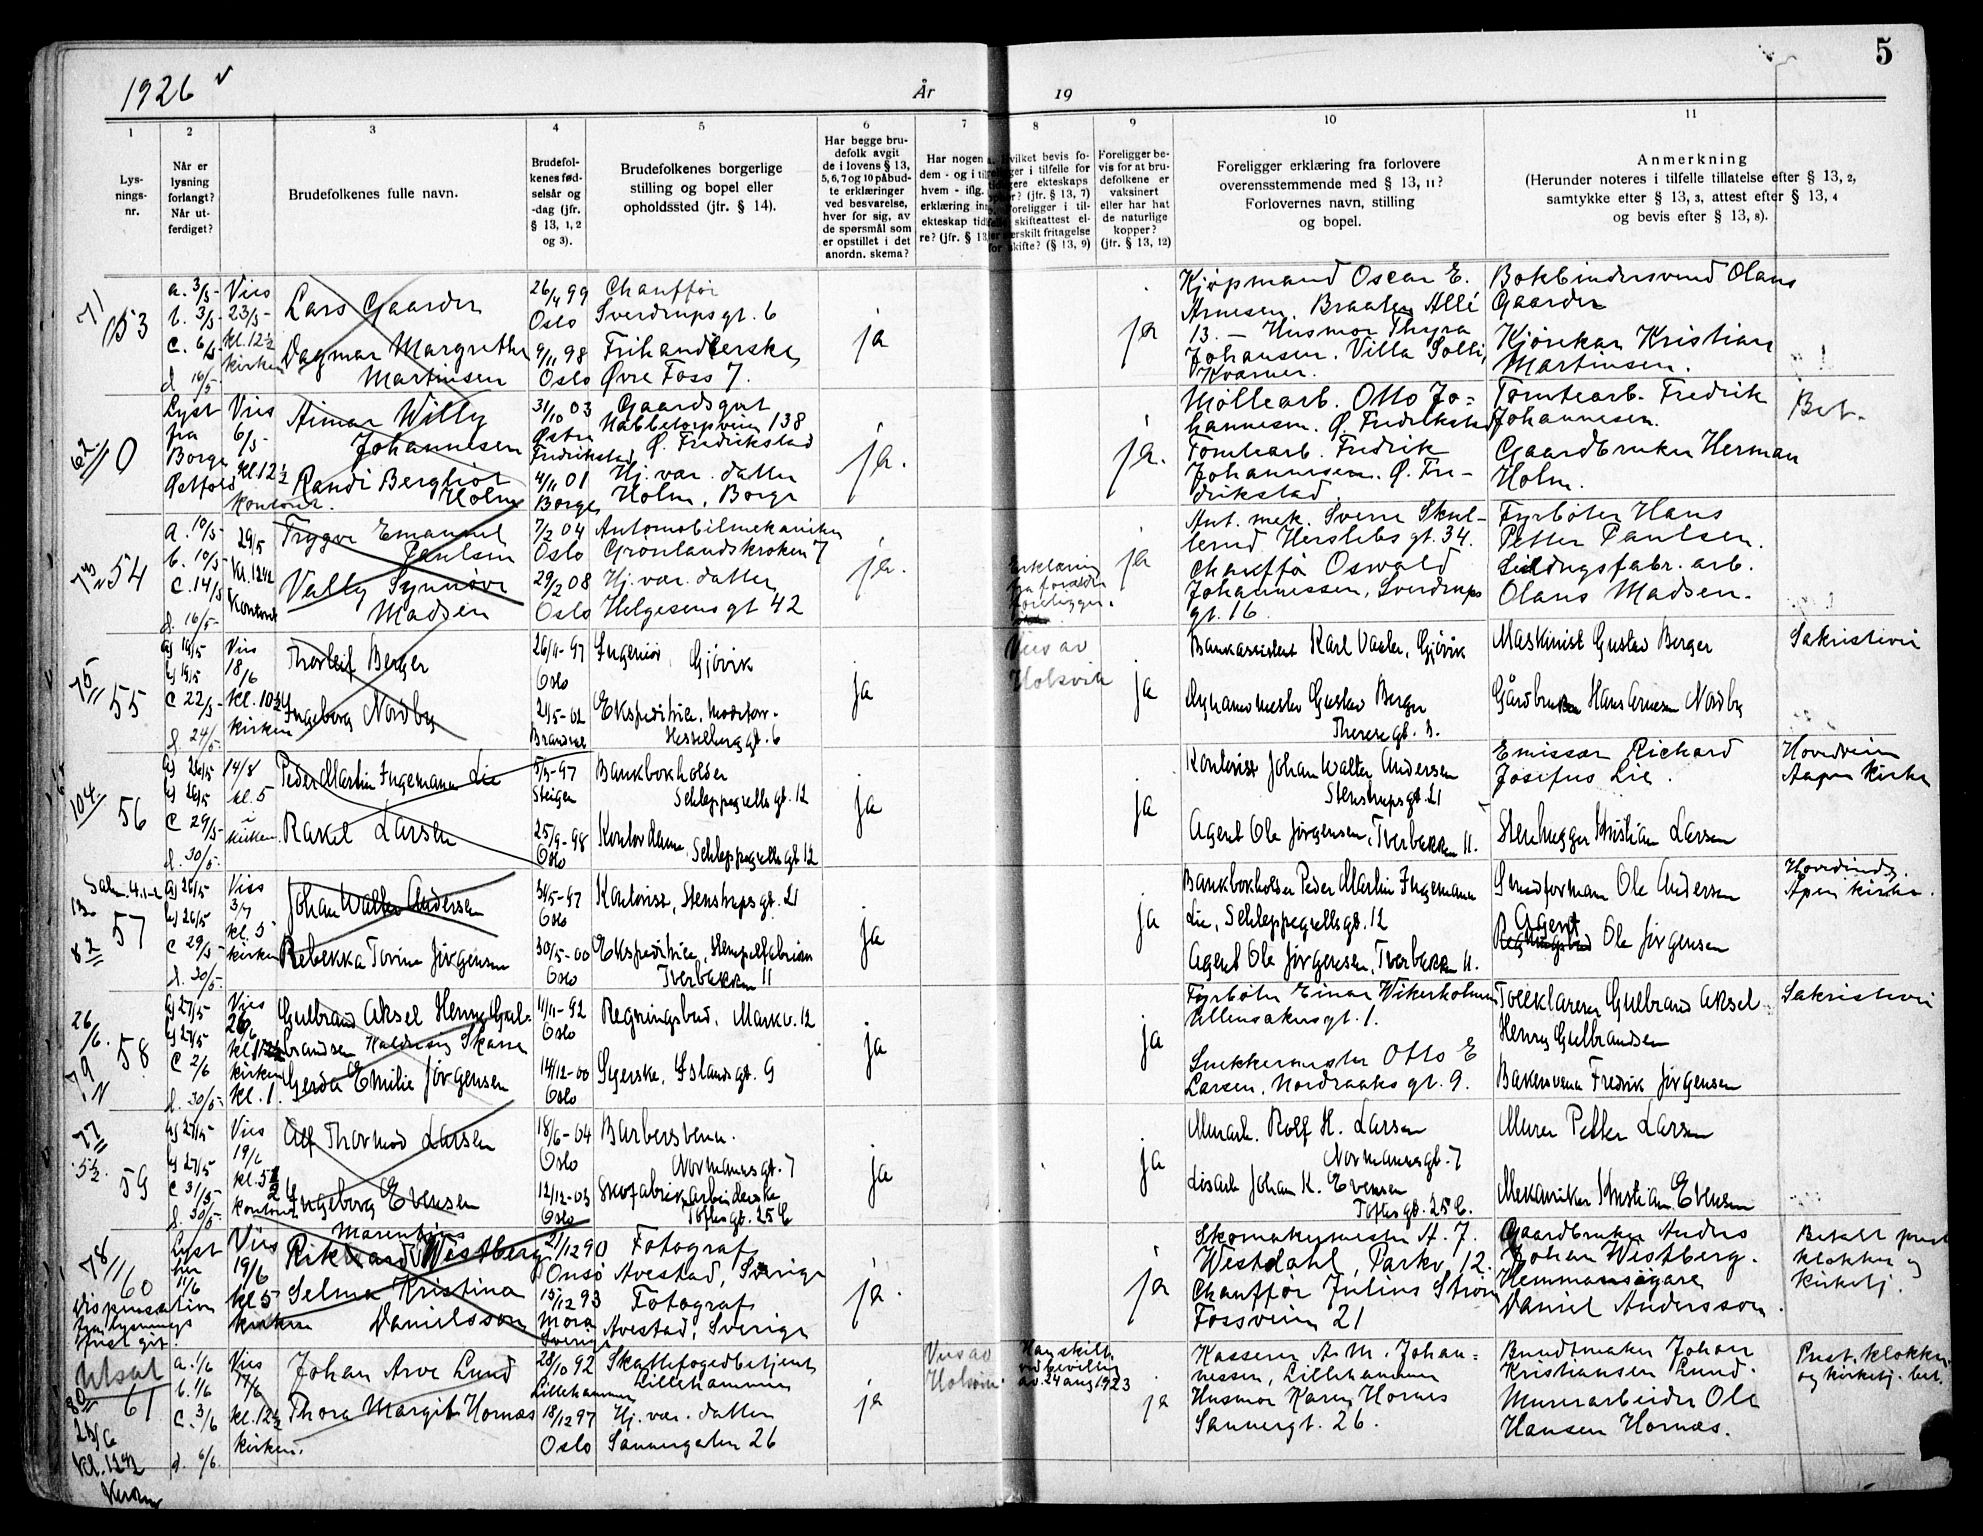 5
1926
År
19
1
2
3
4
5
6
7
8
9
10
11
Lys-
nings-
nr.
Når er
lysning
forlangt?
Når ut-
ferdiget?
Brudefolkenes fulle navn.
Brudefol-
kenes fød-
selsår og
-dag (jfr.
§ 13, 1, 2
og 3).
Brudefolkenes borgerlige
stilling og bopel eller
opholdssted (jfr. § 14).
Har begge bru-
defolk avgit
de i lovens § 13,
5, 6, 7 og 10 påbud-
te erklæringer
ved besvarelse,
hver for sig, av
de spørsmål som
er opstillet i det
anordn. skema?
Har nogen a
dem - og i til
hvem - iflg.
erklæring in
ekteskap tid
re? (jfr. § 13
hvilket bevis fo-
religger i tilfelle for
ekteskaps
? (jfr. § 13, 7)
foreligger i til-
skifteattest el-
særskilt fritagelse
for skifte? (§ 13, 9)
Foreligger be-
vis for at bru-
defolkene er
vaksinert
eller har hat
de naturlige
kopper?
(jfr. § 13, 12)
Foreligger erklæring fra forlovere
overensstemmende med § 13, 11?
Forlovernes navn, stilling
og bopel.
Anmerkning
(Herunder noteres i tilfelle tillatelse efter § 13, 2,
samtykke efter § 13, 3, attest efter § 13, 4
og bevis efter § 13, 8).
71
53
a. 3/5-
b. 3/5-
c. 6/5-
d. 16/5-
Vies
23/5-
kl. 12½
kirken
Lars Gaarder
Dagmar Margrethe
Martinsen
26/4 99
Oslo
9/11 98
Oslo
Chauffør
Sverdrupsgt. 6
Frihandlerske
Øvre Foss 7.
ja
ja
Kjøpmand Oscar E.
Arnesen. Braaten Allé
13. — Husmor Thyra
Johansen. Villa Solli,
Kværner.
Bokbindersvend Olaus
Gaarder
Kjørekar Kristian
Martinsen.
62/
10
Lyst
fra
Borge
Østfold
Vies
6/5-
kl. 12½
kontoret.
Aimar Willy
Johannesen
Randi Bergliot
Holm
31/10 03
Østre
Fredrikstad
4/11 01
Borge
Gaardsgut
Nabbetorpveien 138
Ø. Fredrikstad
Hj. vær. datter
Holm, Borge
ja.
ja.
Møllearb. Otto Jo=
hannesen. Ø. Fredrikstad
Tomtearb. Fredrik
Johannesen. Ø. Fre-
drikstad.
Tomtearb. Fredrik
Johannesen.
Gaardbruker Herman
Holm.
Bet.
54
a. 10/5-
b. 10/5-
c. 14/5
d. 16/5-
29/5
kl. 12½
Kontoret
Trygve Emanuel
Paulsen
Vally Synnøve
Madsen
7/2 04
Oslo
29/2 08
Oslo
Automobilmekaniker
Grønlandskroken 7
Hj. vær. datter
Helgesensgt 42
ja.
Erklæring
fra foreldre
foreligger.
ja
Aut. mek. Sverre Skul-
lerud Herslebsgt. 34.
Chauffør Oswald
Johannessen, Sverdrups
gt. 16.
Fyrbøter Hans
Petter Paulsen.
arb.
Olaus Madsen.
75
55
a) 14/5
b) 14/5
c 22/5-
d. 24/5-
Vies
18/6
kl. 10½
kirken
Thorleif Berger
Ingeborg Nordby
26/11-97
Oslo
21/5-02
Brandval
Ingeniør, Gjøvik
Ekspeditrice,
Hesselberggt. 6
ja
Vies av
Holsvik
ja
Bankassistent Karl Vaaler, Gjøvik
Gustav Berger
Theresegt. 3.
Maskinist Gustav Berger
Gårdbruker Hans Arnesen Nordby
Sakristiet
104/
56
a) 26/5
b) 26/5
c 29/5-
d. 30/5-
14/8
kl. 5
i
kirken.
Peder Martin Ingemann Lie
Rakel Larsen
5/3-97
Steigen
25/9-98
Oslo
Bankbokholder
Schleppegrellsgt. 12
Kontordame, Schleppegrellsgt 12
ja
ja
Kontorist Johan Walter Andersen
Stenstrupsgt. 21
Agent Ole Jørgensen, Tverbakken 11.
Emissær Rickard
Josefus Lie.
Stenhugger Kristian Larsen
Hovedveien
Aapen kirke
82
57
a) 26/5
b) 26/5
c 29/5
d. 30/5-
Vies
3/7
kl. 5
kirken
Johan Walter Andersen
Rebekka Torine Jørgensen
Oslo
30/5-00
Oslo
Kontorist, Stenstrupsgt. 21
Ekspeditrice, Stempelfabrikken
Tverbakken 11
ja
ja
Bankbokholder Peder Martin Ingemann
Lie, Schleppegrellsgt. 12
Agent Ole Jørgensen, Tverbakken 11.
Formann Ole Andersen
Agent
Ole Jørgensen
Åpen kirke.
26/6.
79
58
a) 27/5
b) 27/5
c 2/6
d. 30/5-
Vies
26/6
kirken
kl. 1.
Gulbrand Aksel Henry Gul-
brandsen
Gerda Emilie Jørgensen
11/11-92
Oslo
14/12-00
Oslo
Regningsbud, Markv. 12
Syerske, Islandsgt. 9
ja
ja
Fyrbøter Einar Wikerholmen
Ullensakersgt. 1.
Snekkermester Otto E
Larsen, Nordraaksgt. 9.
Tollklarerer Gulbrand Aksel
Henry Gulbrandsen
Bakersvenn Fredrik Jørgensen
Sakristiet
77
5½.
59
a) 27/5
b) 27/5
c 31/5-
d. 30/5-
Vies
19/6
kl. 5½
kontoret
Alf Thormod Larsen
Ingeborg Evensen
18/6-04
Oslo
12/12-03
Oslo
Barbersvenn.
Normannsgt. 7
Skofabrikarbeiderske
Toftesgt. 25 b
ja
ja
Murarb. Rolf H. Larsen
Normannsgt. 7
Johan K. Evensen
Toftesgt. 25 b.
Murer Petter Larsen
Mekaniker Kristian Evensen
78/11
60
dispensation
fra lysnings
frist git.
Lyst
her
11/6
Vies
19/6
kl 5
kirken
Marentius
Rikhard Westberg
Selma Kristina
Danielsson
21/12 90
Onsø
15/12 93
Mora
Sverige
Fotograf
Avestad, Sverige
Fotograf
Avestad, Sverige
ja.
ja
Skomakermester A. J.
Westdahl, Parkv. 12.
Chauffør Julius Strøm
Fossveien 21
Gaardbruker Anders
Johan Westberg.
Hemmansägare
Daniel Andersson.
Betalt prest
klokker og
kirketj.
Utsat
80
61
26/6
kl. 12½
a. 1/6
b. 1/6
c. 3/6
d. 6/6.
Vies
17/6
kl. 12½
kirken.
Johan Arve Lund
Thora Margit Hornæs
28/10 92
Lillehammer
18/12 97
Oslo
Skattefogedbetjent
Lillehammer
Hj. vær. datter
Sannergaten 26
ja
Vies av
Holsvik.
Han skilt
ved bevilling
av 24 aug 1923
ja
Kasserer A. M. Johan=
nessen, Lillehammer
Husmor Karen Hornæs
Sannergt. 26.
Buntmaker Johan
Kristiansen Lund.
Murerarbeider Ole
Hansen Hornæs.
Prest, klokker
og kirketj. bet.